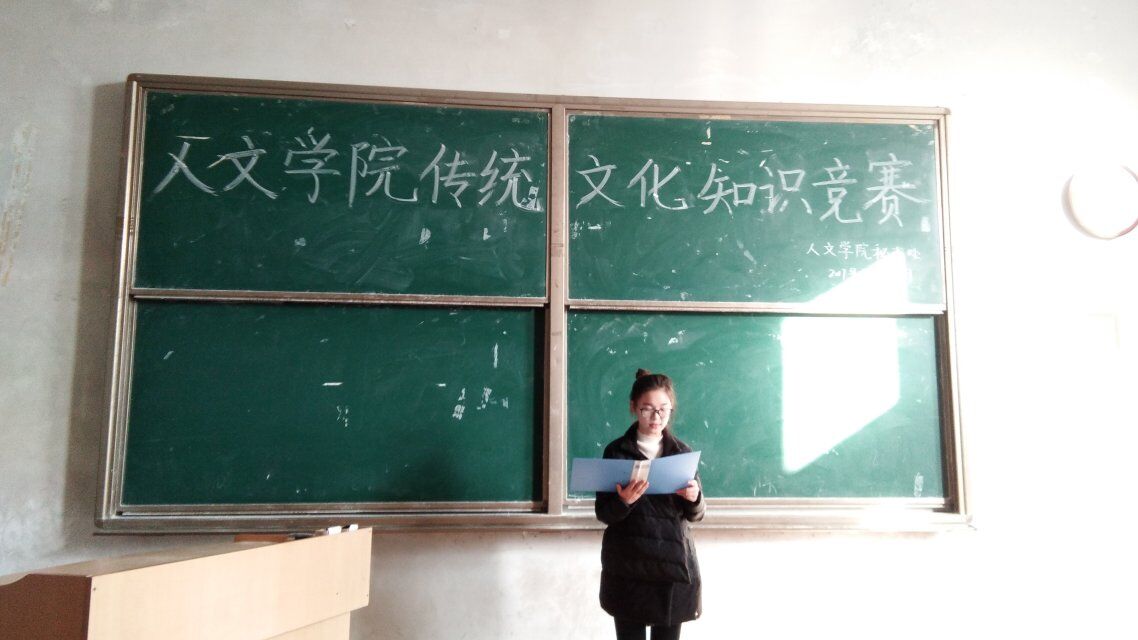 人文学院传统文化知识竞赛
人文学院